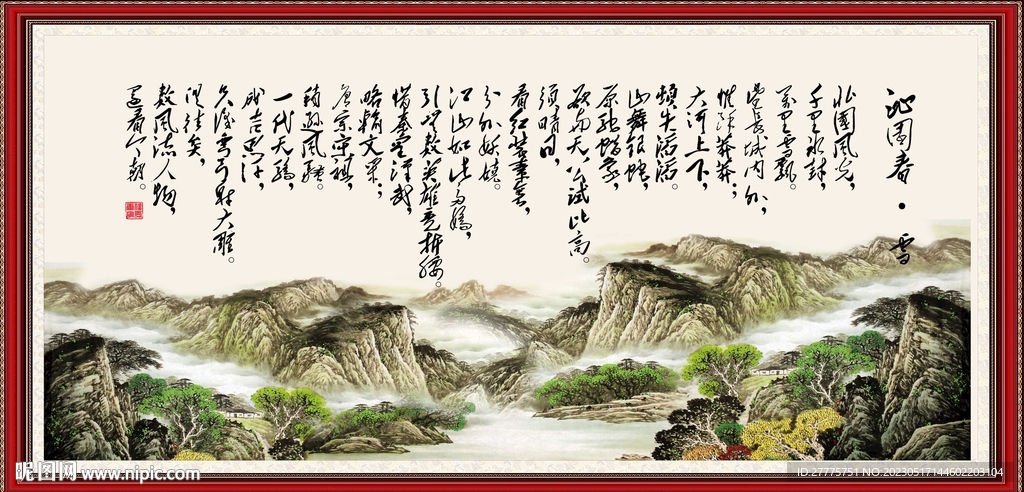 沁园春·雪
北国风光，
千里冰封，
万里雪飘。
望长城内外，
惟馀莽莽；
大河上下，
顿失滔滔。
山舞银蛇，
原驰蜡象，
欲与天公试比高。
须晴日，
看红装素裹，
分外妖娆。
江山如此多娇，
引无数英雄竞折腰。
惜秦皇汉武，
略输文采；
唐宗宋祖，
稍逊风骚。
一代天骄，
成吉思汗，
只识弯弓射大雕。
俱往矣，
数风流人物，
还看今朝。
昵图网 www.nipic.com
ID:27775751 NO:20230517144602203104